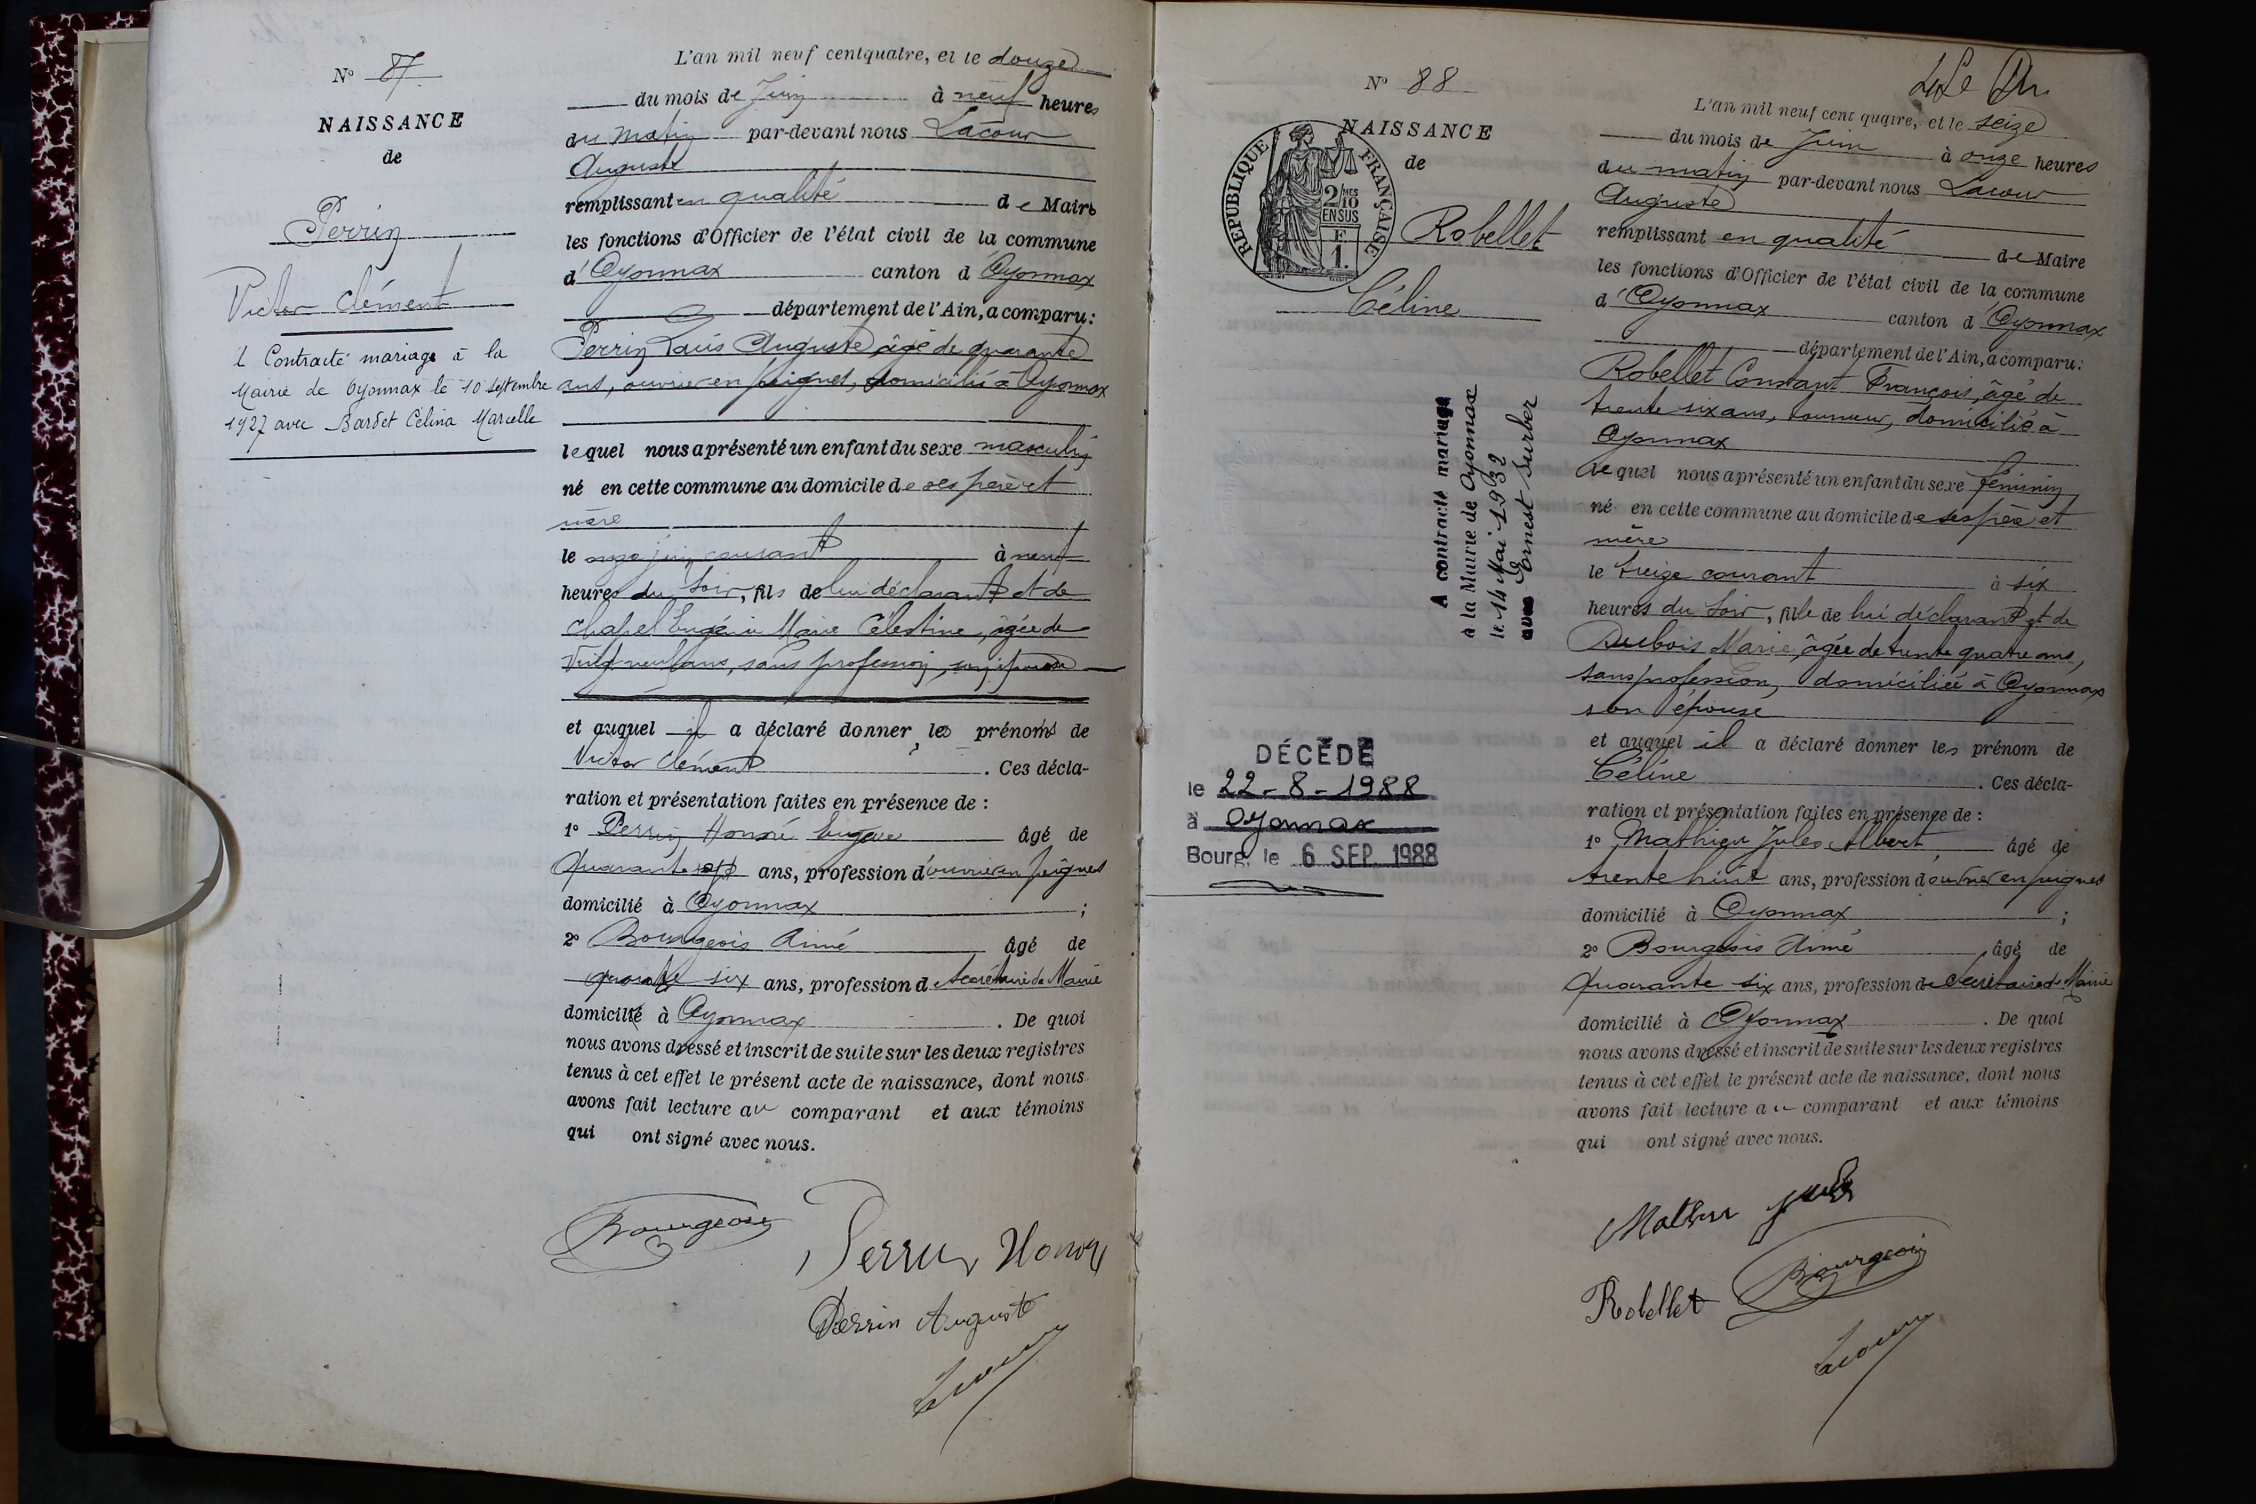 N° 87
NAISSANCE
de
Perrin
Victor Clément
Contracté mariage à la
Mairie de Oyonnax le 10 septembre
1927 avec Bardet Célina Marcelle
L'an mil neuf cent quatre, et le douze
du mois de Juin à neuf heures
du matin par-devant nous Lacour
Auguste
remplissant en qualité de Maire
les fonctions d'Officier de l'état civil de la commune
d'Oyonnax canton d'Oyonnax
département de l'Ain, a comparu:
Perrin Louis Auguste âgé de quarante
ans, ouvrier en peignes, domicilié à Oyonnax
lequel nous a présenté un enfant du sexe masculin
né en cette commune au domicile de ses père et
mère
le onze juin courant à neuf
heures du soir, fils de lui déclarant et de
Chapel Eugénie Marie Célestine, âgée de
vingt neuf ans, sans profession, son épouse
et auquel il a déclaré donner les prénoms de
Victor Clément. Ces décla-
ration et présentation faites en présence de :
1° Perrin Honoré Eugène âgé de
quarante sept ans, profession d'ouvrier en peignes
domicilié à Oyonnax ;
2° Bourgeois Aimé âgé de
quarante six ans, profession de Secrétaire de Mairie
domicilié à Oyonnax. De quoi
nous avons dressé et inscrit de suite sur les deux registres
tenus à cet effet le présent acte de naissance, dont nous
avons fait lecture au comparant et aux témoins
qui ont signé avec nous.
Bourgeois
Perrin Honoré
Perrin Auguste
Lacour
N° 88
NAISSANCE
de
RÉPUBLIQUE FRANÇAISE
2/10
EN SUS
F
1.
Robellet
Céline
A contracté mariage
à la Mairie de Oyonnax
le 14 Mai 1932
avec Ernest Surber
DÉCÉDÉ
le 22-8-1988
à Oyonnax
Bourg, le 6 SEP. 1988
L'an mil neuf cent quatre, et le seize
du mois de Juin à onze heures
du matin par-devant nous Lacour
Auguste
remplissant en qualité de Maire
les fonctions d'Officier de l'état civil de la commune
d'Oyonnax canton d'Oyonnax
département de l'Ain, a comparu:
Robellet Constant François, âgé de
trente six ans, tourneur, domicilié à
Oyonnax
lequel nous a présenté un enfant du sexe féminin
né en cette commune au domicile de ses père et
mère
le treize courant à six
heures du soir, fille de lui déclarant et de
Dubois Marie, âgée de trente quatre ans,
sans profession, domiciliée à Oyonnax
son épouse
et auquel il a déclaré donner les prénom de
Céline. Ces décla-
ration et présentation faites en présence de :
1° Mathieu Jules Albert âgé de
trente huit ans, profession d'ouvrier en peignes
domicilié à Oyonnax ;
2° Bourgeois Aimé âgé de
quarante six ans, profession de Secrétaire de Mairie
domicilié à Oyonnax. De quoi
nous avons dressé et inscrit de suite sur les deux registres
tenus à cet effet le présent acte de naissance, dont nous
avons fait lecture au comparant et aux témoins
qui ont signé avec nous.
Mathieu Jules
Bourgeois
Robellet
Lacour